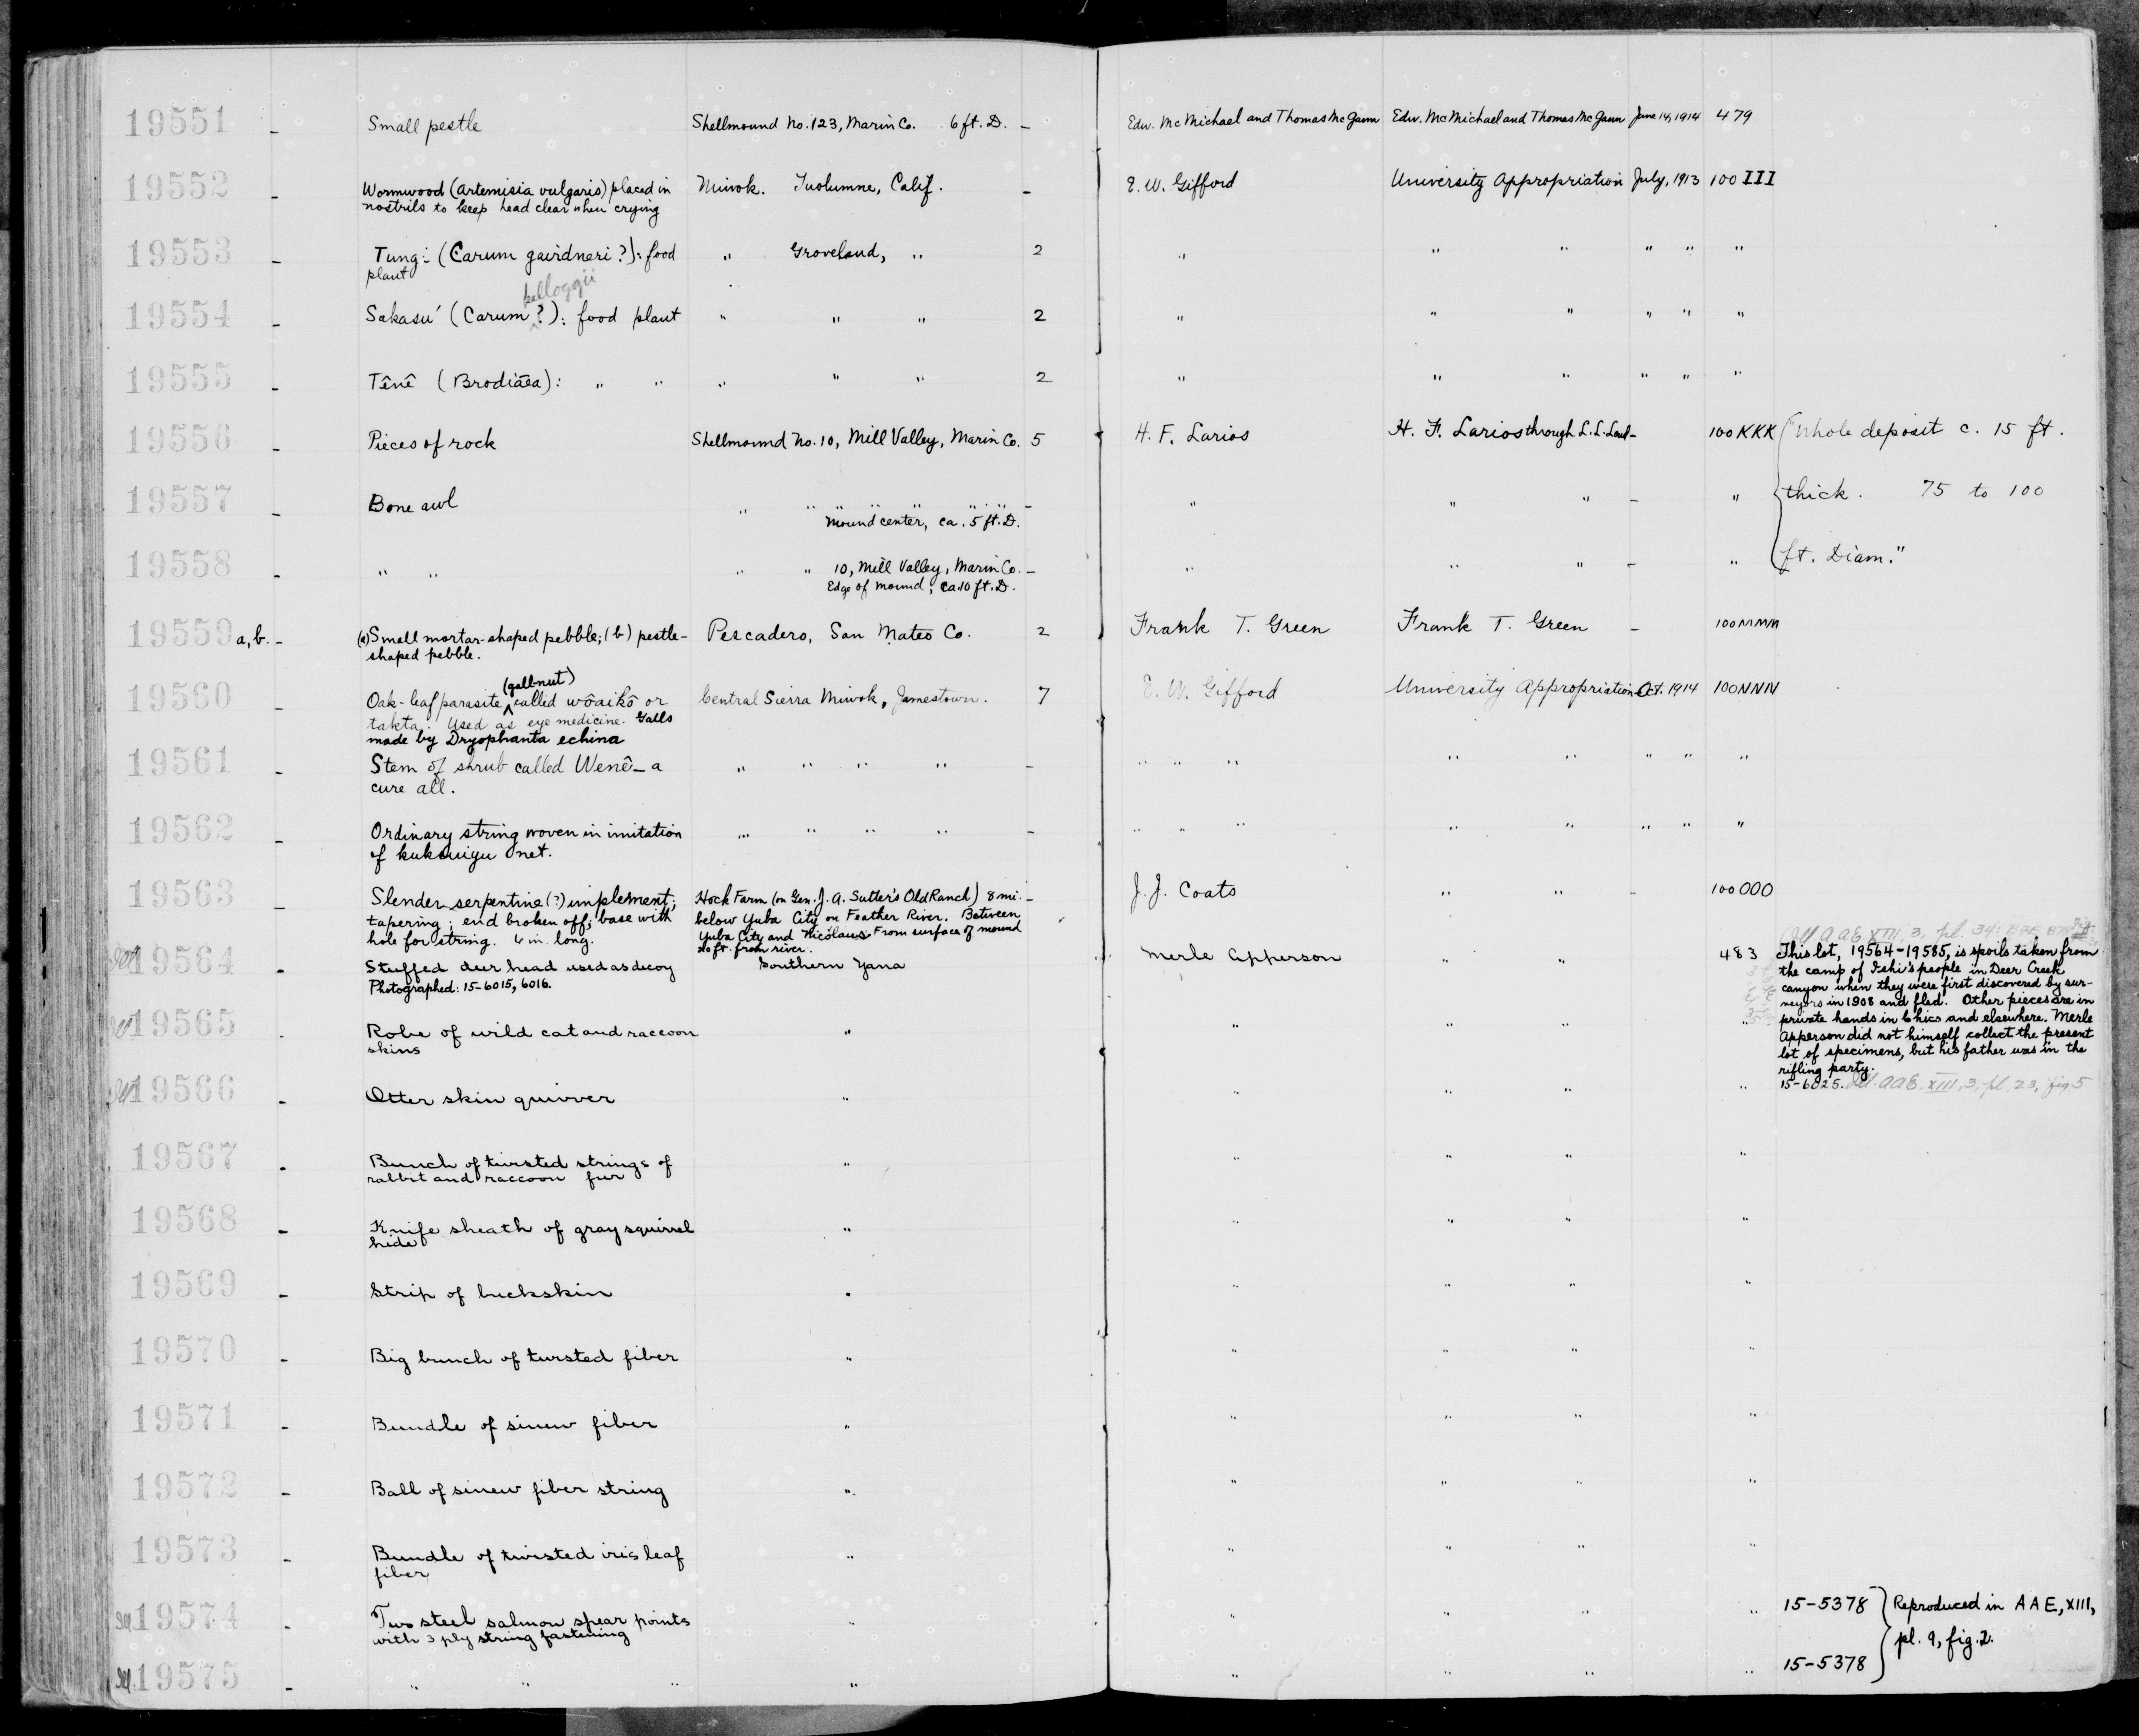 19551 - Small pestle Shellmound No. 123, Marin Co. 6 ft. D. - Edw. McMichael and Thomas McGann Edw. McMichael and Thomas McGann June 14, 1914 479
19552 - Wormwood (Artemisia vulgaris) placed in Miwok. Tuolumne, Calif. - E. W. Gifford University Appropriation July, 1913 100 III
nostrils to keep head clear when crying
19553 - Tung: (Carum gairdneri ?): food " Groveland, " 2 " " " " " "
plant
kelloggii
19554 - Sakasu' (Carum ^ ?): food plant " " " 2 " " " " " "
19555 - Tênê (Brodiaea): " " " " " 2 " " " " " "
19556 - Pieces of rock Shellmound No. 10, Mill Valley, Marin Co. 5 H. F. Larios H. F. Larios through L. L. Loud - 100KKK "Whole deposit c. 15 ft.
19557 - Bone awl " " " " " " " - " " " - " thick. 75 to 100
Mound center, ca. 5 ft. D.
19558 - " " " " 10, Mill Valley, Marin Co. - " " " - " ft. Diam."
Edge of mound, ca. 10 ft. D.
19559 a, b. - (a) Small mortar-shaped pebble; (b) pestle- Pescadero, San Mateo Co. 2 Frank T. Green Frank T. Green - 100MMM
shaped pebble.
(gall-nut)
19560 - Oak-leaf parasite ^ called wôaikô or Central Sierra Miwok, Jamestown. 7 E. W. Gifford University Appropriation Oct. 1914 100NNN
takta. Used as eye medicine. Galls
made by Dryophanta echina
19561 - Stem of shrub called Wenê - a " " " " - " " " " " " " "
cure all.
19562 - Ordinary string woven in imitation " " " " - " " " " " " " "
of net.
19563 - Slender serpentine (?) implement; Hock Farm (on Gen. J. A. Sutter's Old Ranch) 8 mi. - J. J. Coats " " - 100 OOO
tapering; end broken off; base with below Yuba City on Feather River. Between
hole for string. 6 in. long. Yuba City and Nicolaus From surface of mound
20 ft. from river.
AAE XIII, 3, pl. 34:
19564 - Stuffed deer head used as decoy Southern Yana Merle Apperson " " 483 This lot, 19564-19585, is spoils taken from
Photographed: 15-6015, 6016.
the camp of Ishi's people in Deer Creek
canyon when they were first discovered by sur-
veyors in 1908 and fled. Other pieces are in
19565 - Robe of wild cat and raccoon " " " " " private hands in Chico and elsewhere. Merle
skins
Apperson did not himself collect the present
lot of specimens, but his father was in the
rifling party.
19566 - Otter skin quiver " " " " " 15-6025. AAE. XIII, 3, pl. 23, fig. 5
19567 - Bunch of twisted strings of " " " " "
rabbit and raccoon fur
19568 - Knife sheath of gray squirrel " " " " "
hide
19569 - Strip of buckskin " " " " "
19570 - Big bunch of twisted fiber " " " " "
19571 - Bundle of sinew fiber " " " " "
19572 - Ball of sinew fiber string " " " " "
19573 - Bundle of twisted iris leaf " " " " "
fiber
19574 - Two steel salmon spear points " " " " " 15-5378 Reproduced in AAE, XIII,
with 3 ply string fastening pl. 9, fig. 2.
19575 - " " " " " " " " 15-5378